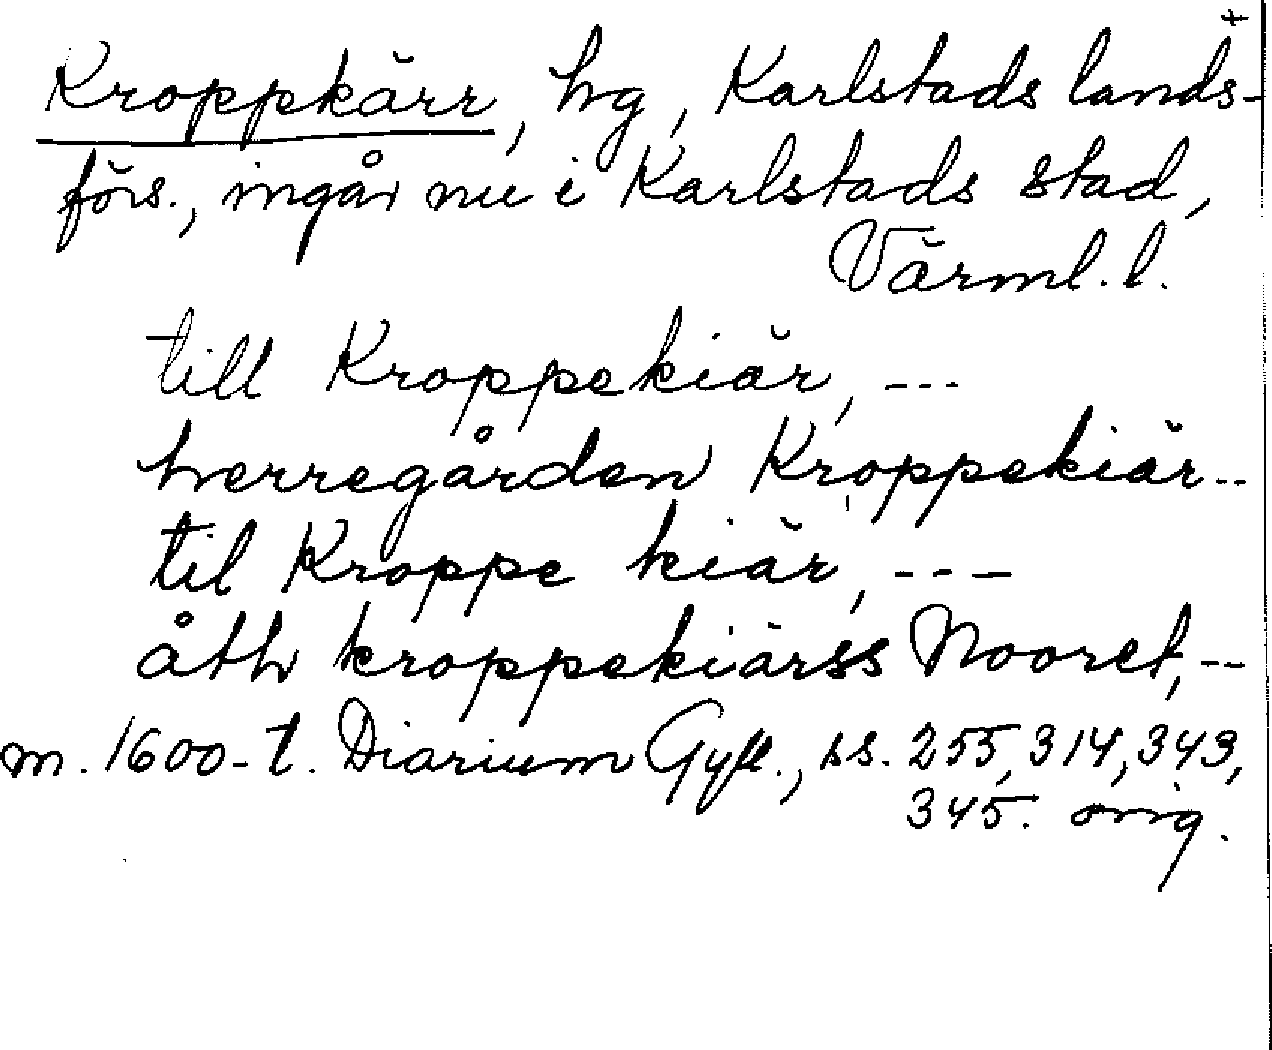 Kroppkärr, hg, Karlstads lands-
förs., ingår nu i Karlstads stad,
Värml. l.
till Kroppekiär, ---
herregården Kroppekiär--
til Kroppe kiär, ---
åth kroppekiärss Nooret, --
m. 1600-t. Diarium Gyll., ss. 255, 314, 343,
345. orig.